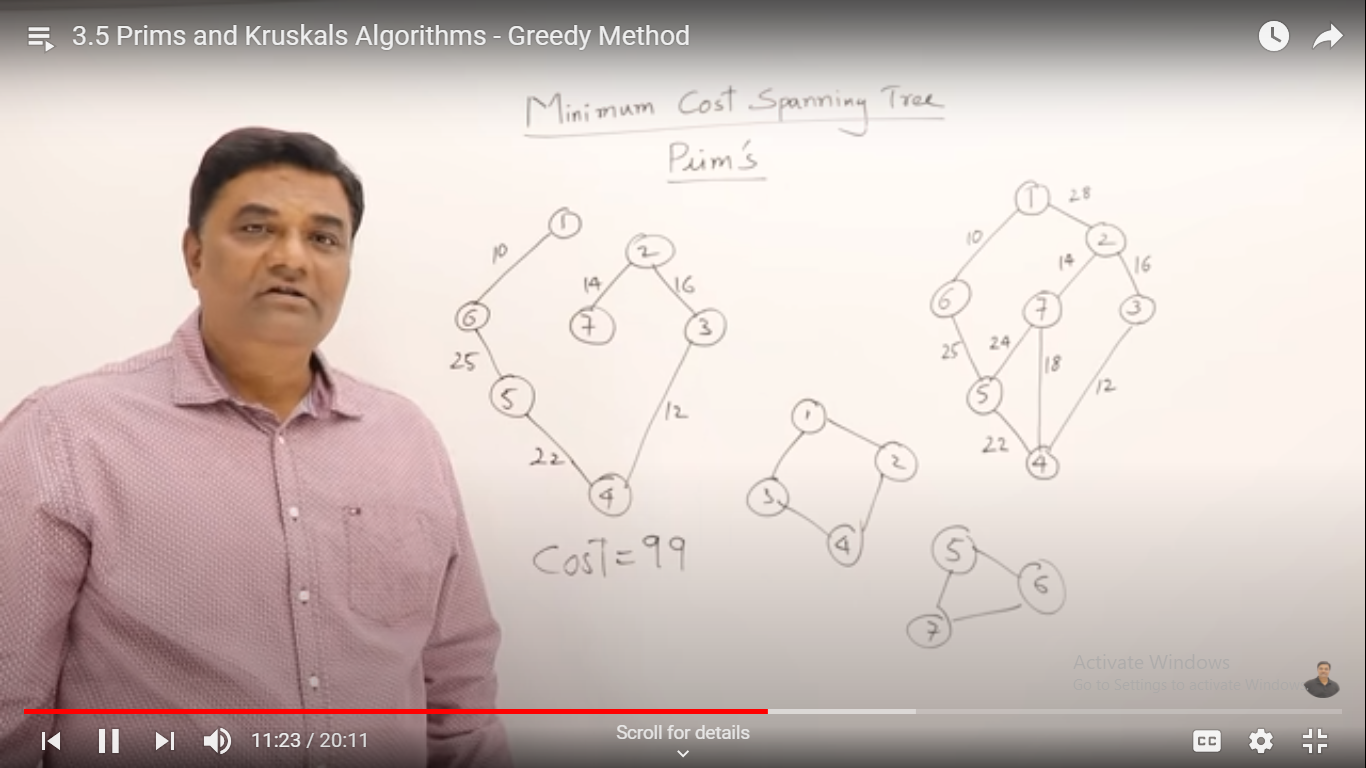 3.5 Prims and Kruskals Algorithms - Greedy Method
Minimum Cost Spanning Tree
Prim's
1
10
2
14
16
6
7
3
25
5
12
22
4
Cost = 99
1
28
10
2
14
16
6
7
3
25
24
18
5
12
22
4
1
2
3
4
5
6
7
Activate Windows
Go to Settings to activate Windows
11:23 / 20:11
Scroll for details
CC